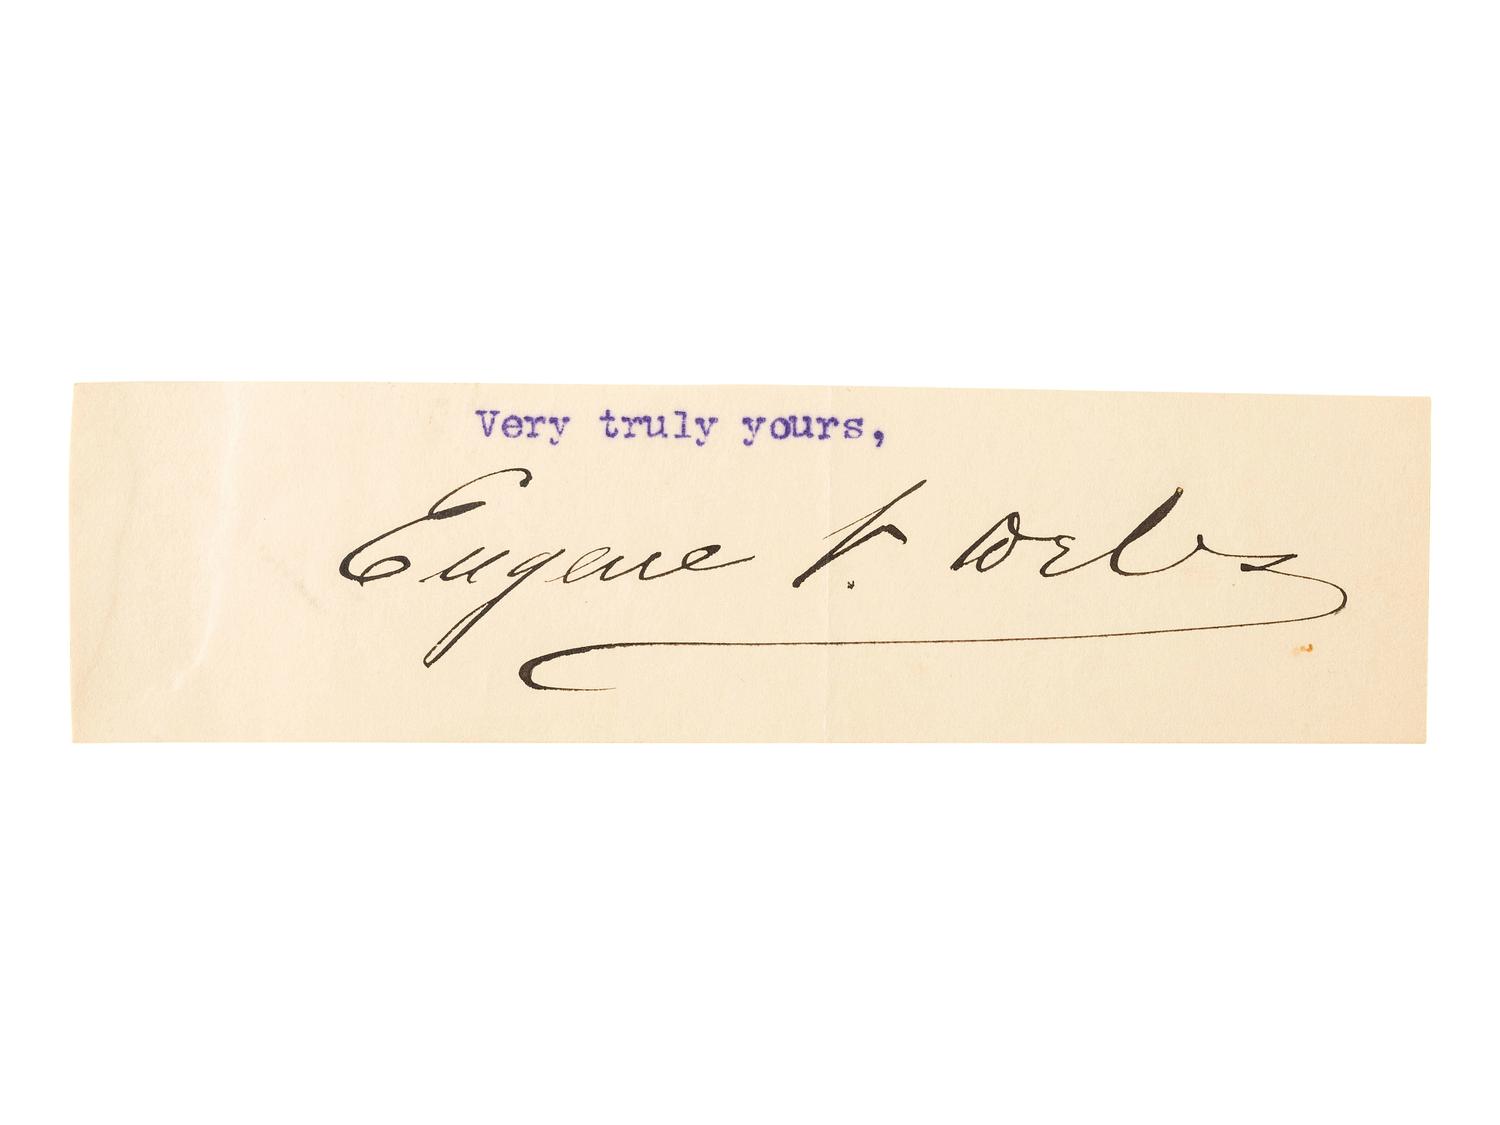 Very truly yours,
Eugene V. Debs